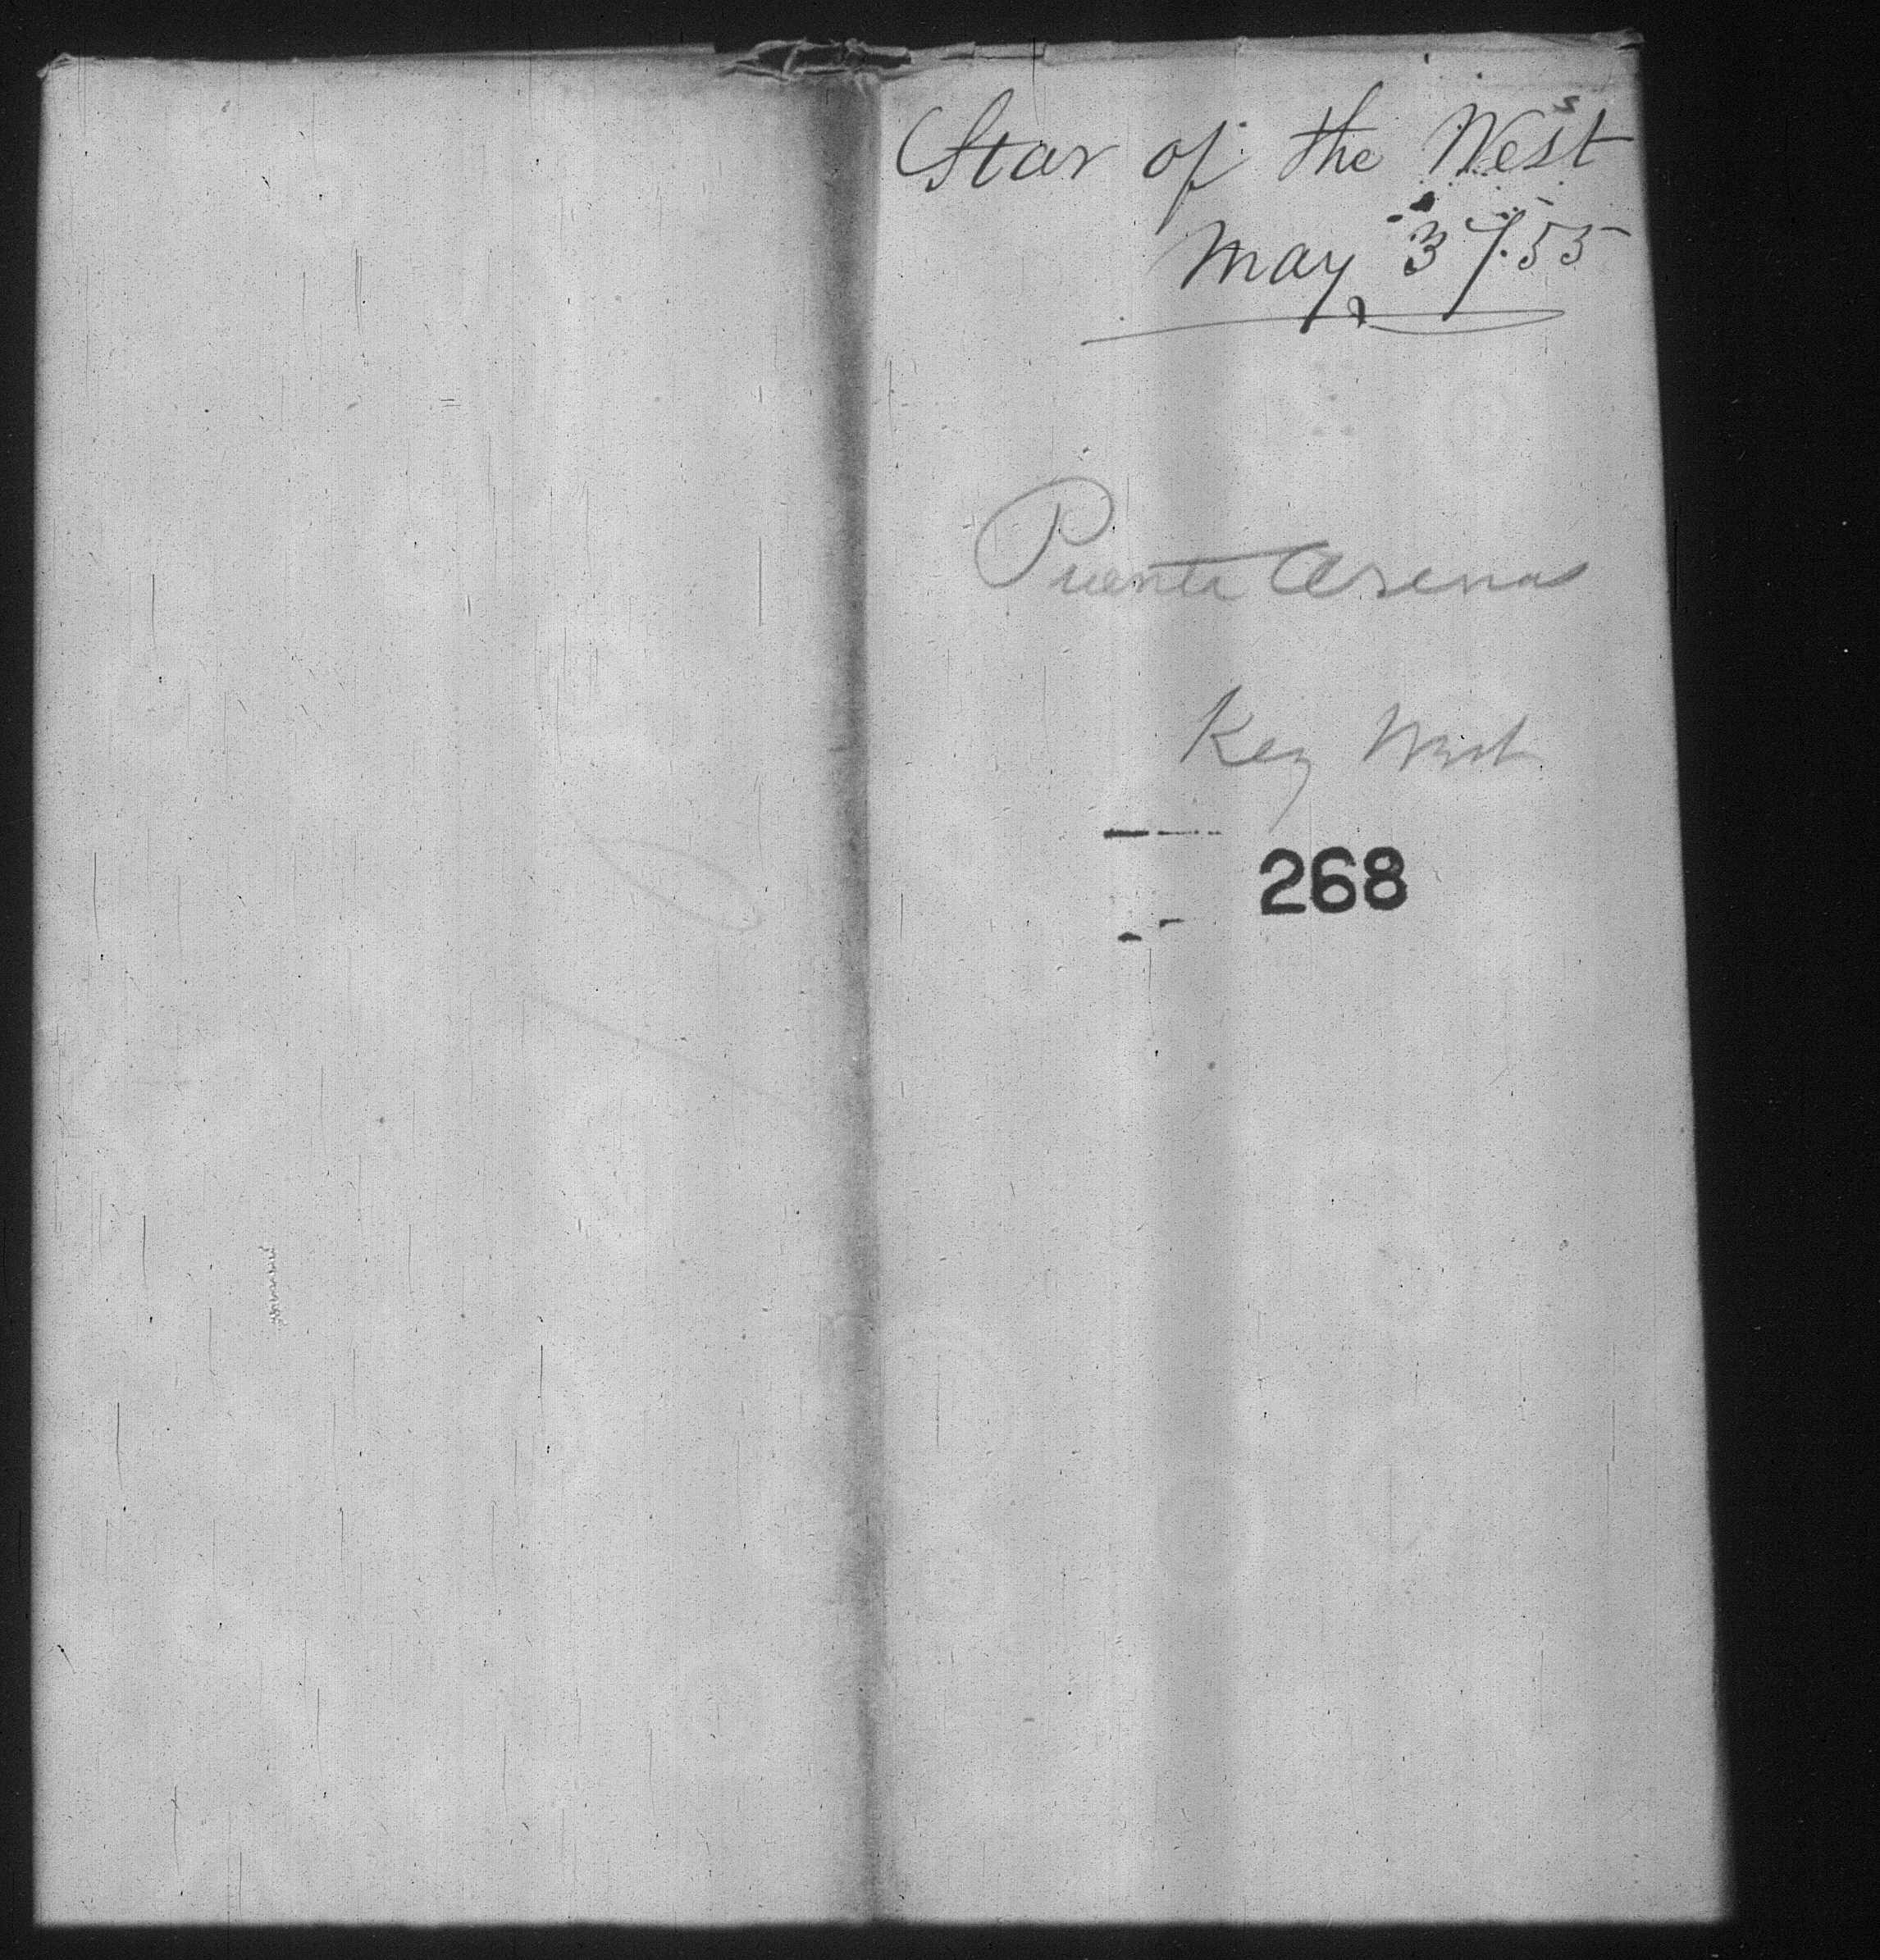 Star of the West
May 3 /.55
Puenta Arenas
Key West
268